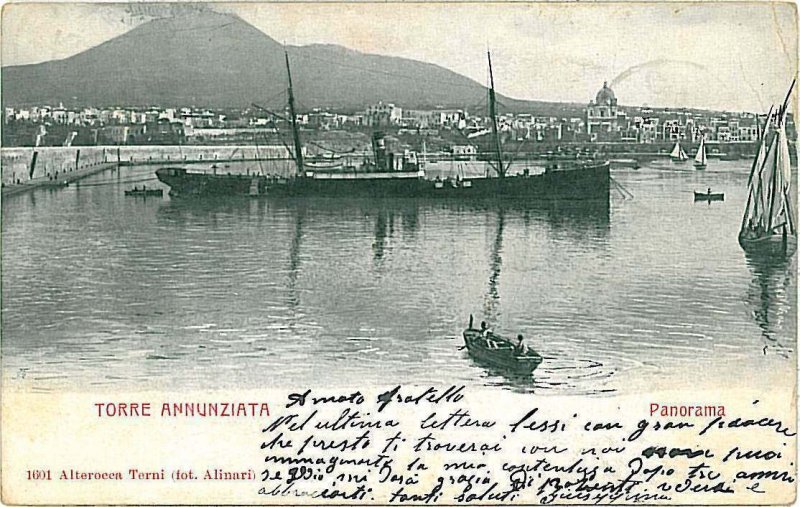 TORRE ANNUNZIATA
Panorama
1601 Alterocca Terni (fot. Alinari)
Amato fratello
Nell ultima lettera lessi con gran piacere
che presto ti troverai con noi non puoi
immaginarti la mia contentezza dopo tre anni
se Dio mi darà grazia di poterti vedere e
abbracciarti. tanti saluti Giuseppina